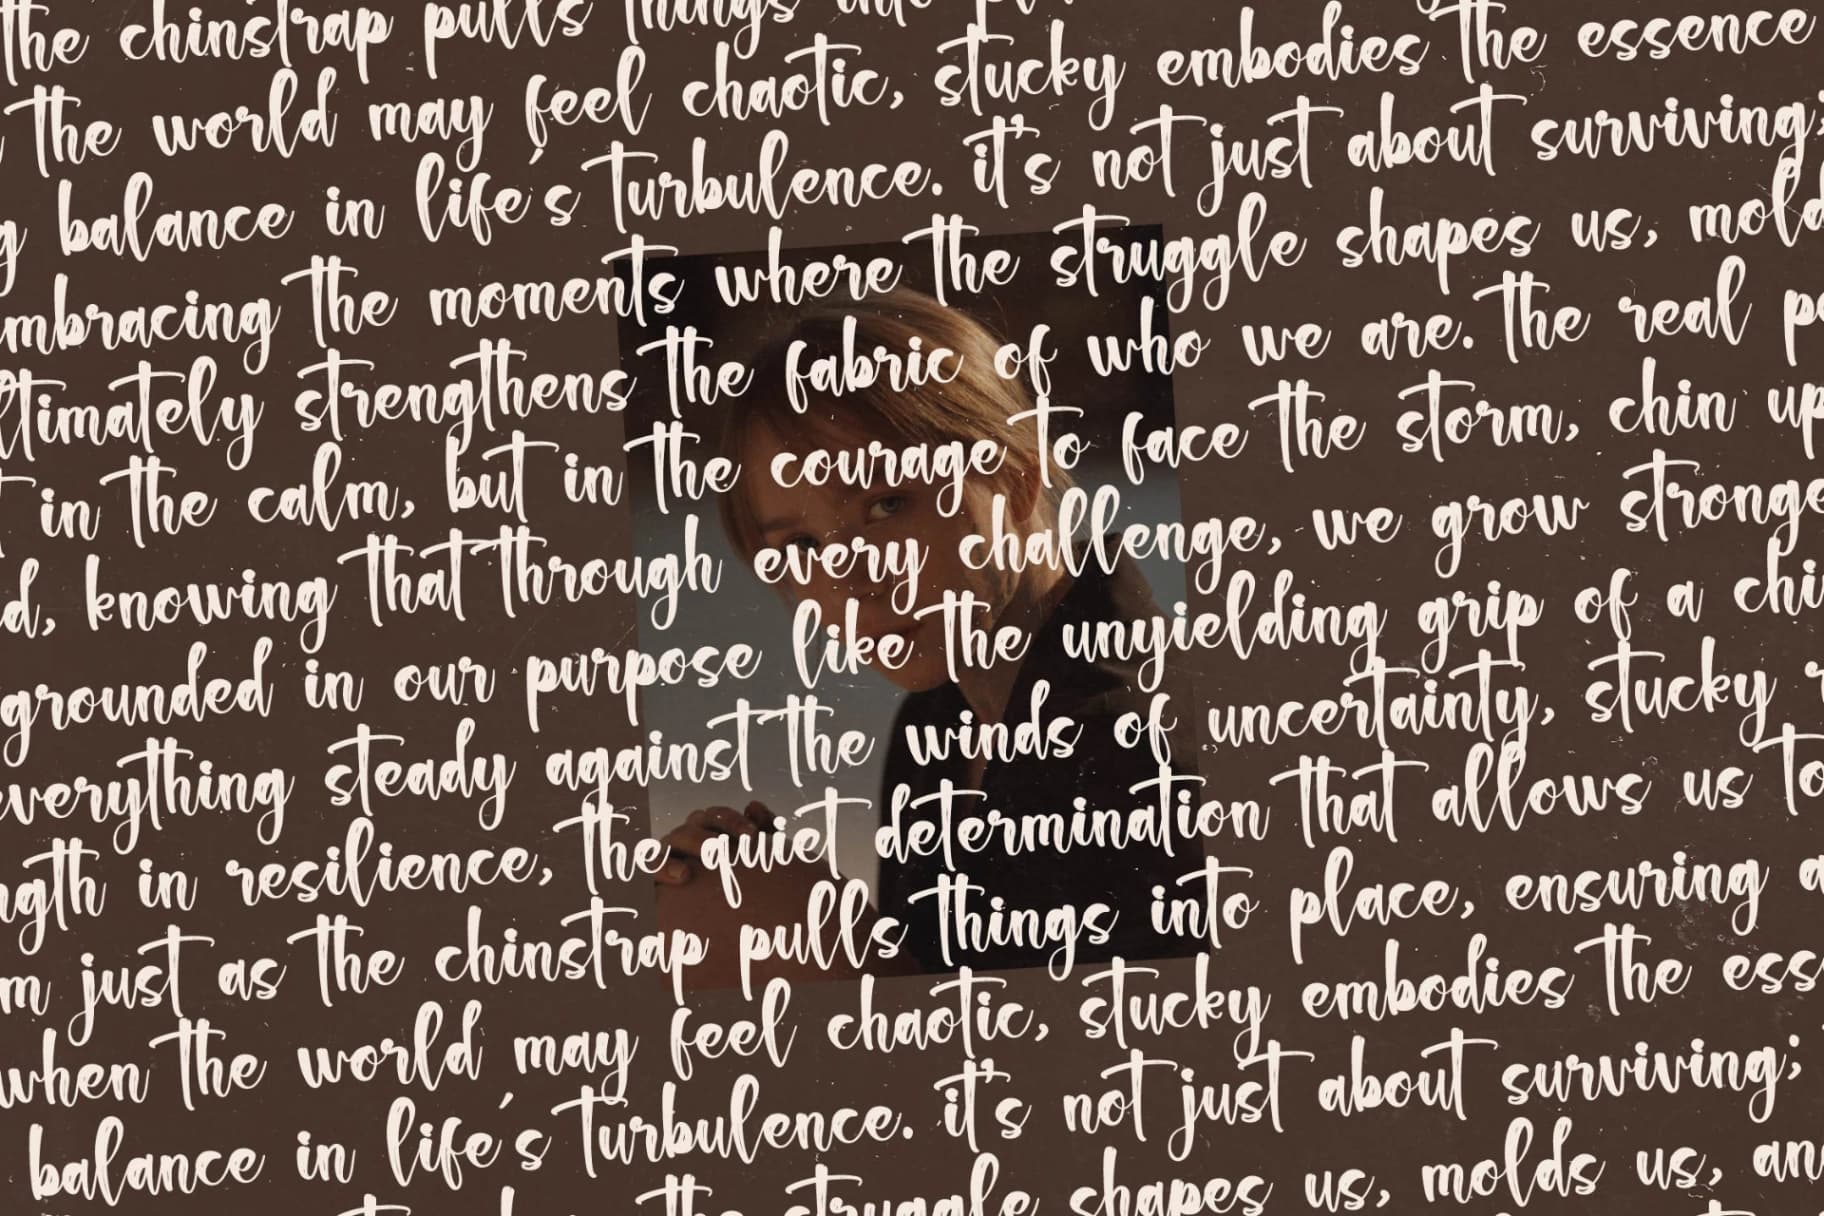 the chinstrap pulls things into
the world may feel chaotic, stucky embodies the essence
balance in life's turbulence. it's not just about surviving;
the moments where the struggle shapes us,
strengthens the fabric of who we are. the real
in the calm, but in the courage to face the storm, chin up
knowing that through every challenge, we grow
grounded in our purpose like the unyielding grip of a
everything steady against the winds of uncertainty, stucky
in resilience, the quiet determination that allows us to
just as the chinstrap pulls things into place, ensuring a
when the world may feel chaotic, stucky embodies the
balance in life's turbulence. it's not just about surviving;
the struggle shapes us, molds us,